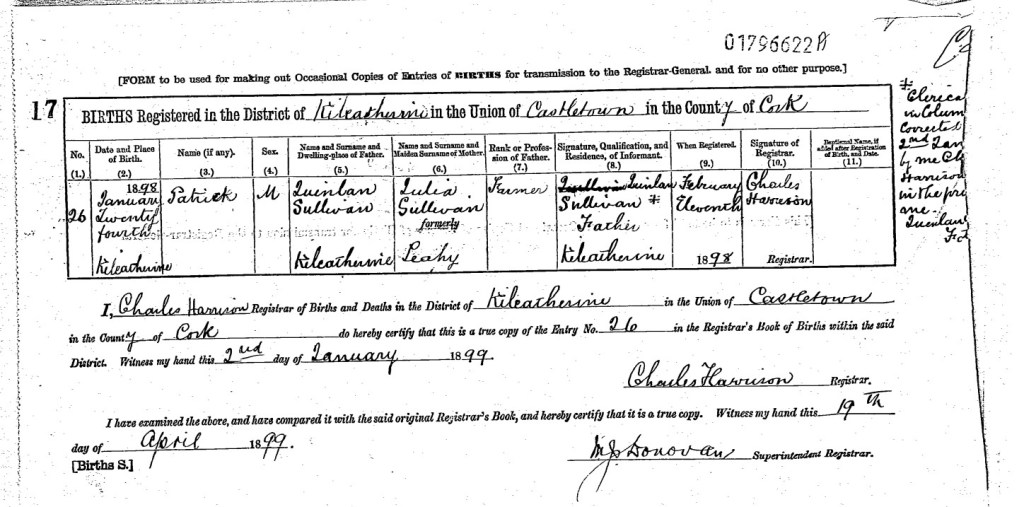 01796622A
[FORM to be used for making out Occasional Copies of Entries of BIRTHS for transmission to the Registrar-General, and for no other purpose.]
17
BIRTHS Registered in the District of Kilcatherine in the Union of Castletown in the County of Cork
No. Date and Place of Birth. Name (if any). Sex. Name and Surname and Dwelling-place of Father. Name and Surname and Maiden Surname of Mother. Rank or Profession of Father. Signature, Qualification, and Residence, of Informant. When Registered. Signature of Registrar. Baptismal Name, if added after Registration of Birth, and Date.
(1.) (2.) (3.) (4.) (5.) (6.) (7.) (8.) (9.) (10.) (11.)
26
1898 January Twenty fourth Kilcatherine
Patrick
M
Quinlan Sullivan Kilcatherine
Julia Sullivan formerly Leahy
Farmer
Quinlan Sullivan * Father Kilcatherine
February Eleventh 1898
Charles Harrison Registrar.
* Clerica
in Colum
Corrected
2nd Jan
by me Ch
Harrison
in the pre
Quinlan
I, Charles Harrison Registrar of Births and Deaths in the District of Kilcatherine in the Union of Castletown
in the County of Cork do hereby certify that this is a true copy of the Entry No. 26 in the Registrar's Book of Births within the said
District. Witness my hand this 2nd day of January 1899.
Charles Harrison Registrar.
I have examined the above, and have compared it with the said original Registrar's Book, and hereby certify that it is a true copy. Witness my hand this 19th
day of April 1899.
MJ Donovan Superintendent Registrar.
[Births S.]